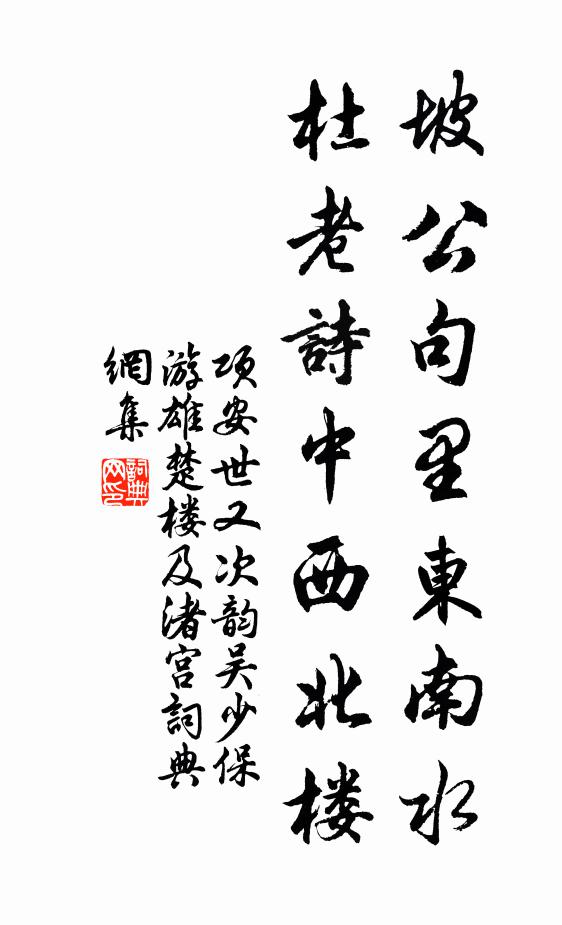 坡公句里東南水
杜老詩中西北楼
项安世又次韵吴少保
游雄楚楼及渚宫詞典
網集
詞典网印